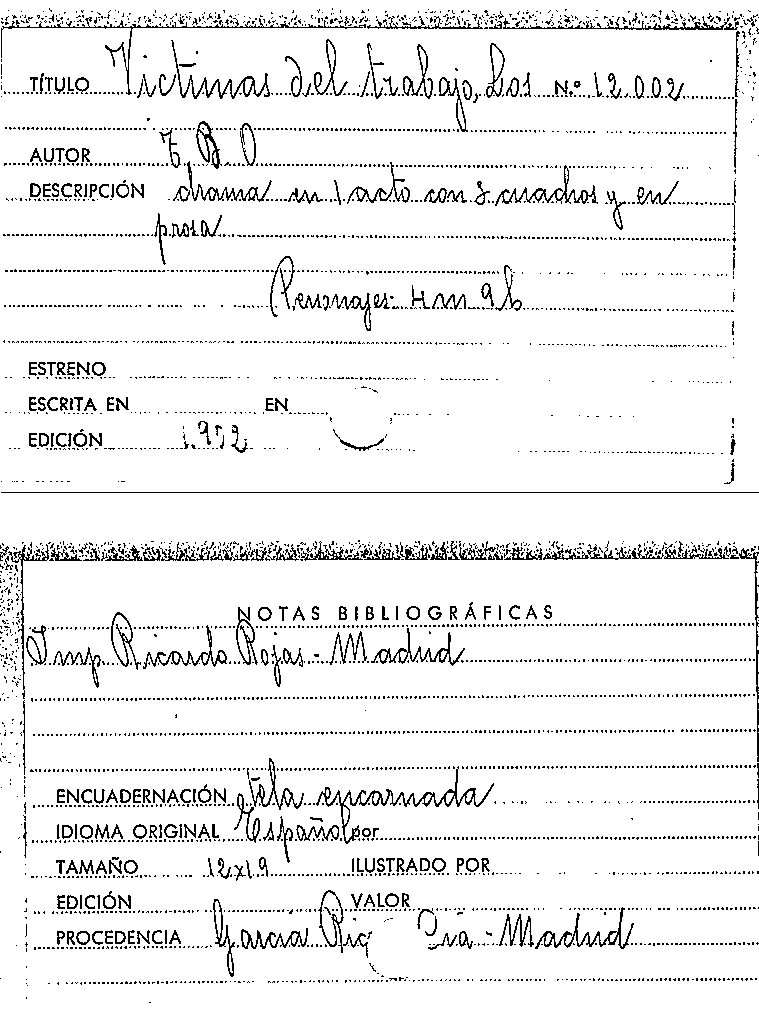 TÍTULO Victimas del trabajo, Los N.º 12.002
AUTOR T. B. O
DESCRIPCIÓN drama en 1 acto con 8 cuadros y en
prosa
Personajes: 4 m 9 h
ESTRENO
ESCRITA EN EN
EDICIÓN
NOTAS BIBLIOGRÁFICAS
Imp. Ricardo Rojas - Madrid
ENCUADERNACIÓN tela encarnada
IDIOMA ORIGINAL Español por
TAMAÑO 12x19 ILUSTRADO POR
EDICIÓN VALOR
PROCEDENCIA García - Madrid